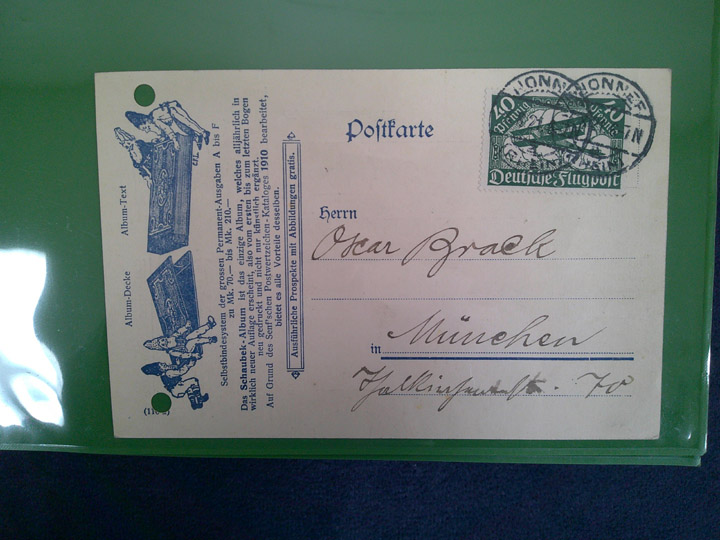 Album-Decke Album-Text
Selbstbindesystem der grossen Permanent-Ausgaben A bis F
zu Mk. 70.— bis Mk. 210.—
Das Schaubek-Album ist das einzige Album, welches alljährlich in
wirklich neuer Auflage erscheint, also vom ersten bis zum letzten Bogen
neu gedruckt und nicht nur künstlich ergänzt.
Auf Grund des Senf'schen Postwertzeichen-Kataloges 1910 bearbeitet,
bietet es alle Vorteile desselben.
Ausführliche Prospekte mit Abbildungen gratis.
Postkarte
40 40
Pfennig
Deutsche Flugpost
HONNEF
Herrn
Oscar Brack
in München
70